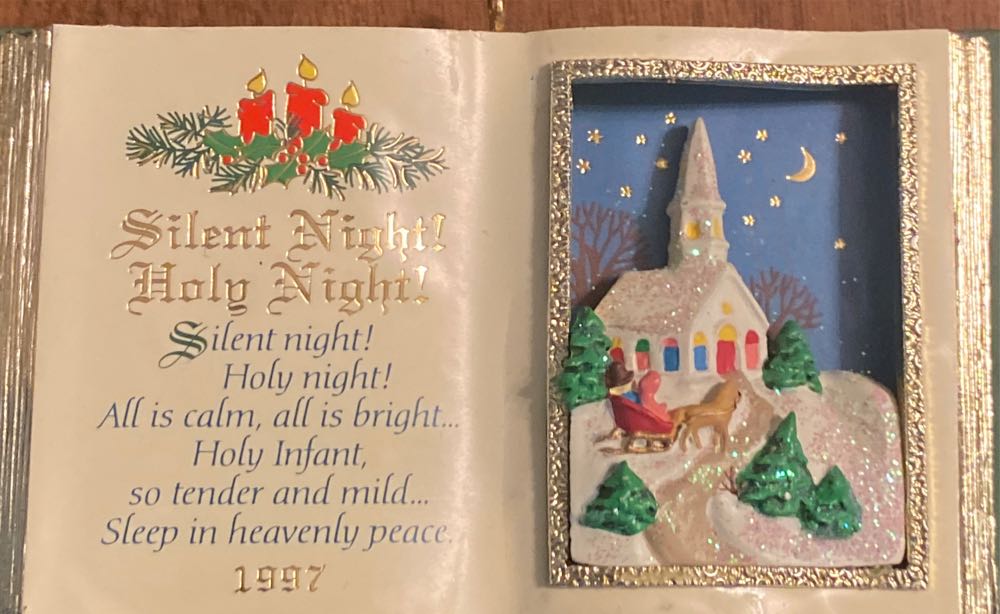 Silent Night!
Holy Night!
Silent night!
Holy night!
All is calm, all is bright...
Holy Infant,
so tender and mild...
Sleep in heavenly peace.
1997